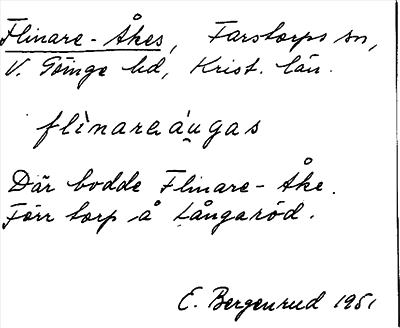 Flinare-Åkes, Farstorps sn,
V. Göinge hd, Krist. län.
flìnaraáu̯gas
Där bodde Flinare-Åke.
Förr torp å Långaröd.
E. Bergenrud 1951